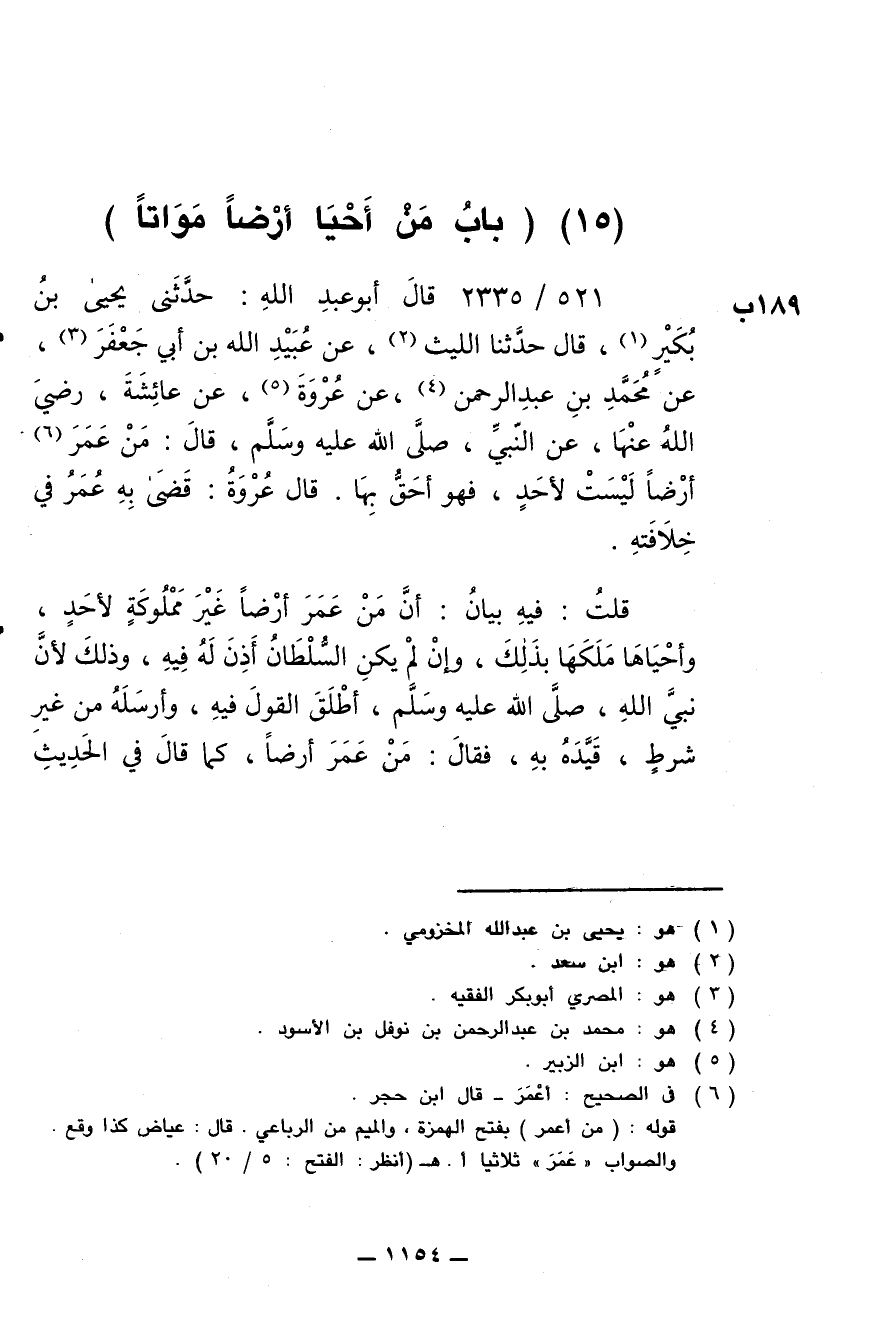 (١٥) ( بابُ مَنْ أَحْيَا أرْضاً مَوَاتاً )
١٨٩ب
٥٢١ / ٢٣٣٥ قالَ أبوعبدِ اللهِ : حدَّثَنى يحيىٰ بنُ
بُكَيْرٍ (١) ، قال حدَّثنا الليث (٢) ، عن عُبَيْدِ الله بن أبي جَعْفَرَ (٣) ،
عن مُحَمَّدِ بنِ عبدِالرحمن (٤) ،عن عُرْوَةَ (٥) ، عن عائِشَةَ ، رضيَ
اللهُ عنْهَا ، عن النّبيِّ ، صلَّى الله عليه وسَلَّم ، قالَ : مَنْ عَمَرَ (٦)
أرْضاً لَيْسَتْ لأحَدٍ ، فهو أحَقُّ بِهَا . قال عُرْوَةُ : قَضَىٰ بِهِ عُمَرُ في
خِلَافَتهِ .
قلتُ : فيهِ بيانُ : أنَّ مَنْ عَمَرَ أرْضاً غَيْرَ مَمْلُوكَةٍ لأحَدٍ ،
وأحْيَاهَا مَلَكَهَا بذَلِكَ ، وإنْ لمْ يكنِ السُّلْطَانُ أَذِنَ لَهُ فِيهِ ، وذلكَ لأنَّ
نبيَّ اللهِ ، صلَّى الله عليه وسَلَّم ، أطْلَقَ القولَ فيهِ ، وأرسَلَهُ من غيرِ
شرطٍ ، قَيَّدَهُ بهِ ، فقالَ : مَنْ عَمَرَ أرضاً ، كما قالَ في الحَدِيثِ
(١) هو : يحيى بن عبدالله المخزومي .
(٢) هو : ابن سعد .
(٣) هو : المصري أبوبكر الفقيه .
(٤) هو : محمد بن عبدالرحمن بن نوفل بن الأسود .
(٥) هو : ابن الزبير .
(٦) فى الصحيح : أعْمَرَ ــ قال ابن حجر .
قوله : ( من أعمر ) بفتح الهمزة ، والميم من الرباعي . قال : عياض كذا وقع .
والصواب « عَمَرَ » ثلاثيا أ . هـ (أنظر : الفتح : ٥ / ٢٠ ) .
ــ ١١٥٤ ــ